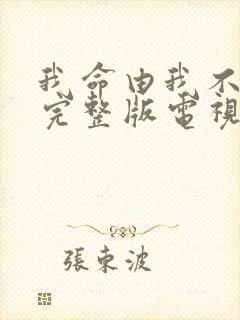 我命由我不
完整版電視
張東波